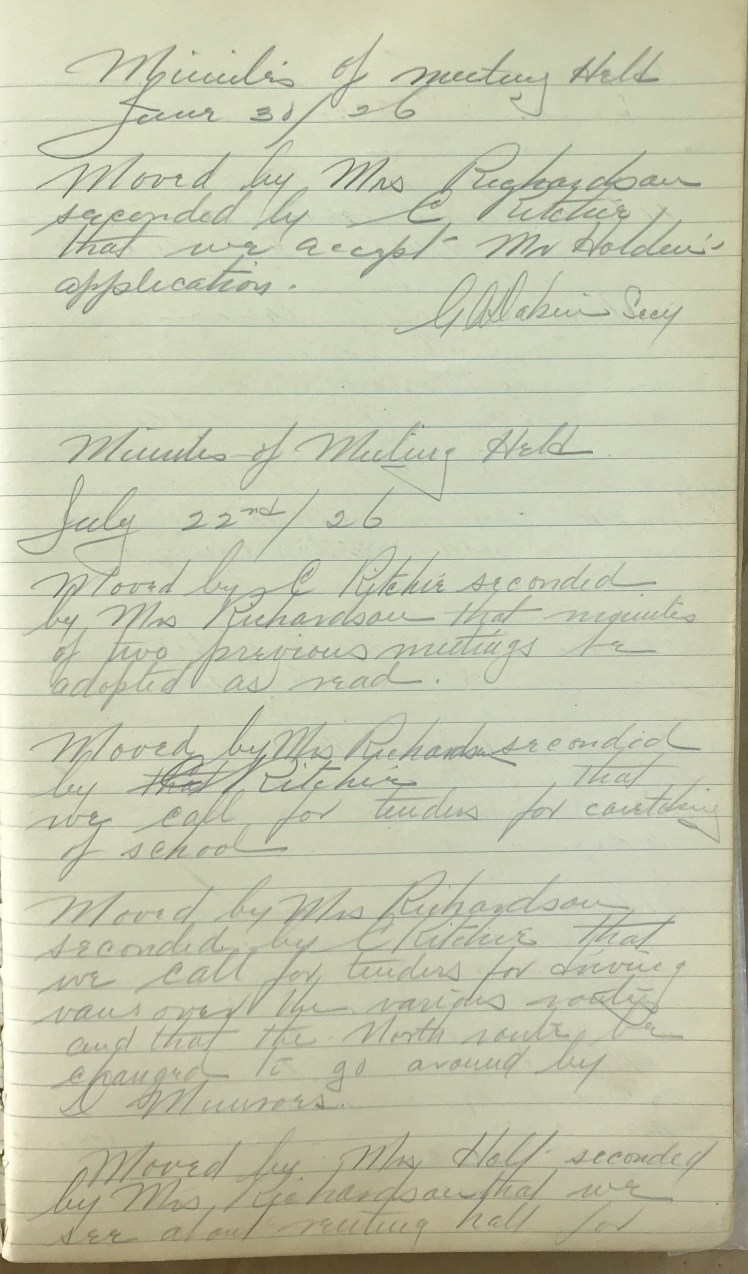 Minutes of meeting Held
June 30/26
Moved by Mrs Righardson
seconded by C Ritchie
that we accept Mr Holden's
application.
Secy
Minutes of Meeting Held
July 22nd/26
Moved by C Ritchie seconded
by Mrs Richardson that minutes
of two previous meetings be
adopted as read.
Moved by Mrs Richardson seconded
by Ritchie that
we call for tenders for caretaking
of school
Moved by Mrs Richardson
seconded by C Ritchie that
we call for tenders for driving
vans over the various routes
and that the North route be
changed to go around by
D Munroes.
Moved by Mrs Holt seconded
by Mrs Richardson that we
see about renting hall for